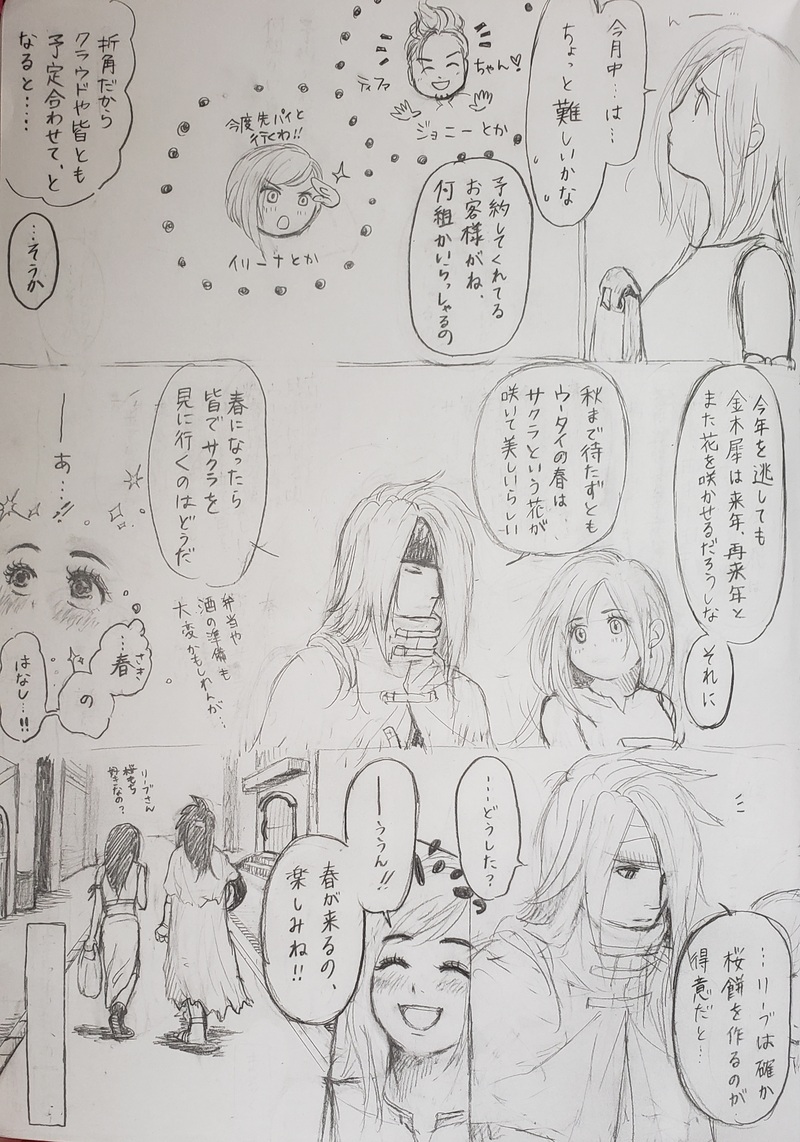 んーー
今月中…は…
ちょっと難しいかな
予約してくれてる
お客様がね、
何組かいらっしゃるの
ティファ
ちゃん♡
ジョニーとか
今度先パイと
行くわ!!
イリーナとか
折角だから
クラウドや皆とも
予定合わせて、と
なると……
…そうか
今年を逃しても
金木犀は来年、再来年と
また花を咲かせるだろうしな
それに
秋まで待たずとも
ウータイの春は
サクラという花が
咲いて美しいらしい
春になったら
皆でサクラを
見に行くのはどうだ
弁当や
酒の準備も
大変かもしれんが…
ーあ…!!
…春
さき
の
はなし…!!
…リーブは確か
桜餅を作るのが
得意だと…
…どうした?
ーううん!!
春が来るの、
楽しみね!!
リーブさん
桜もち
好きなの?